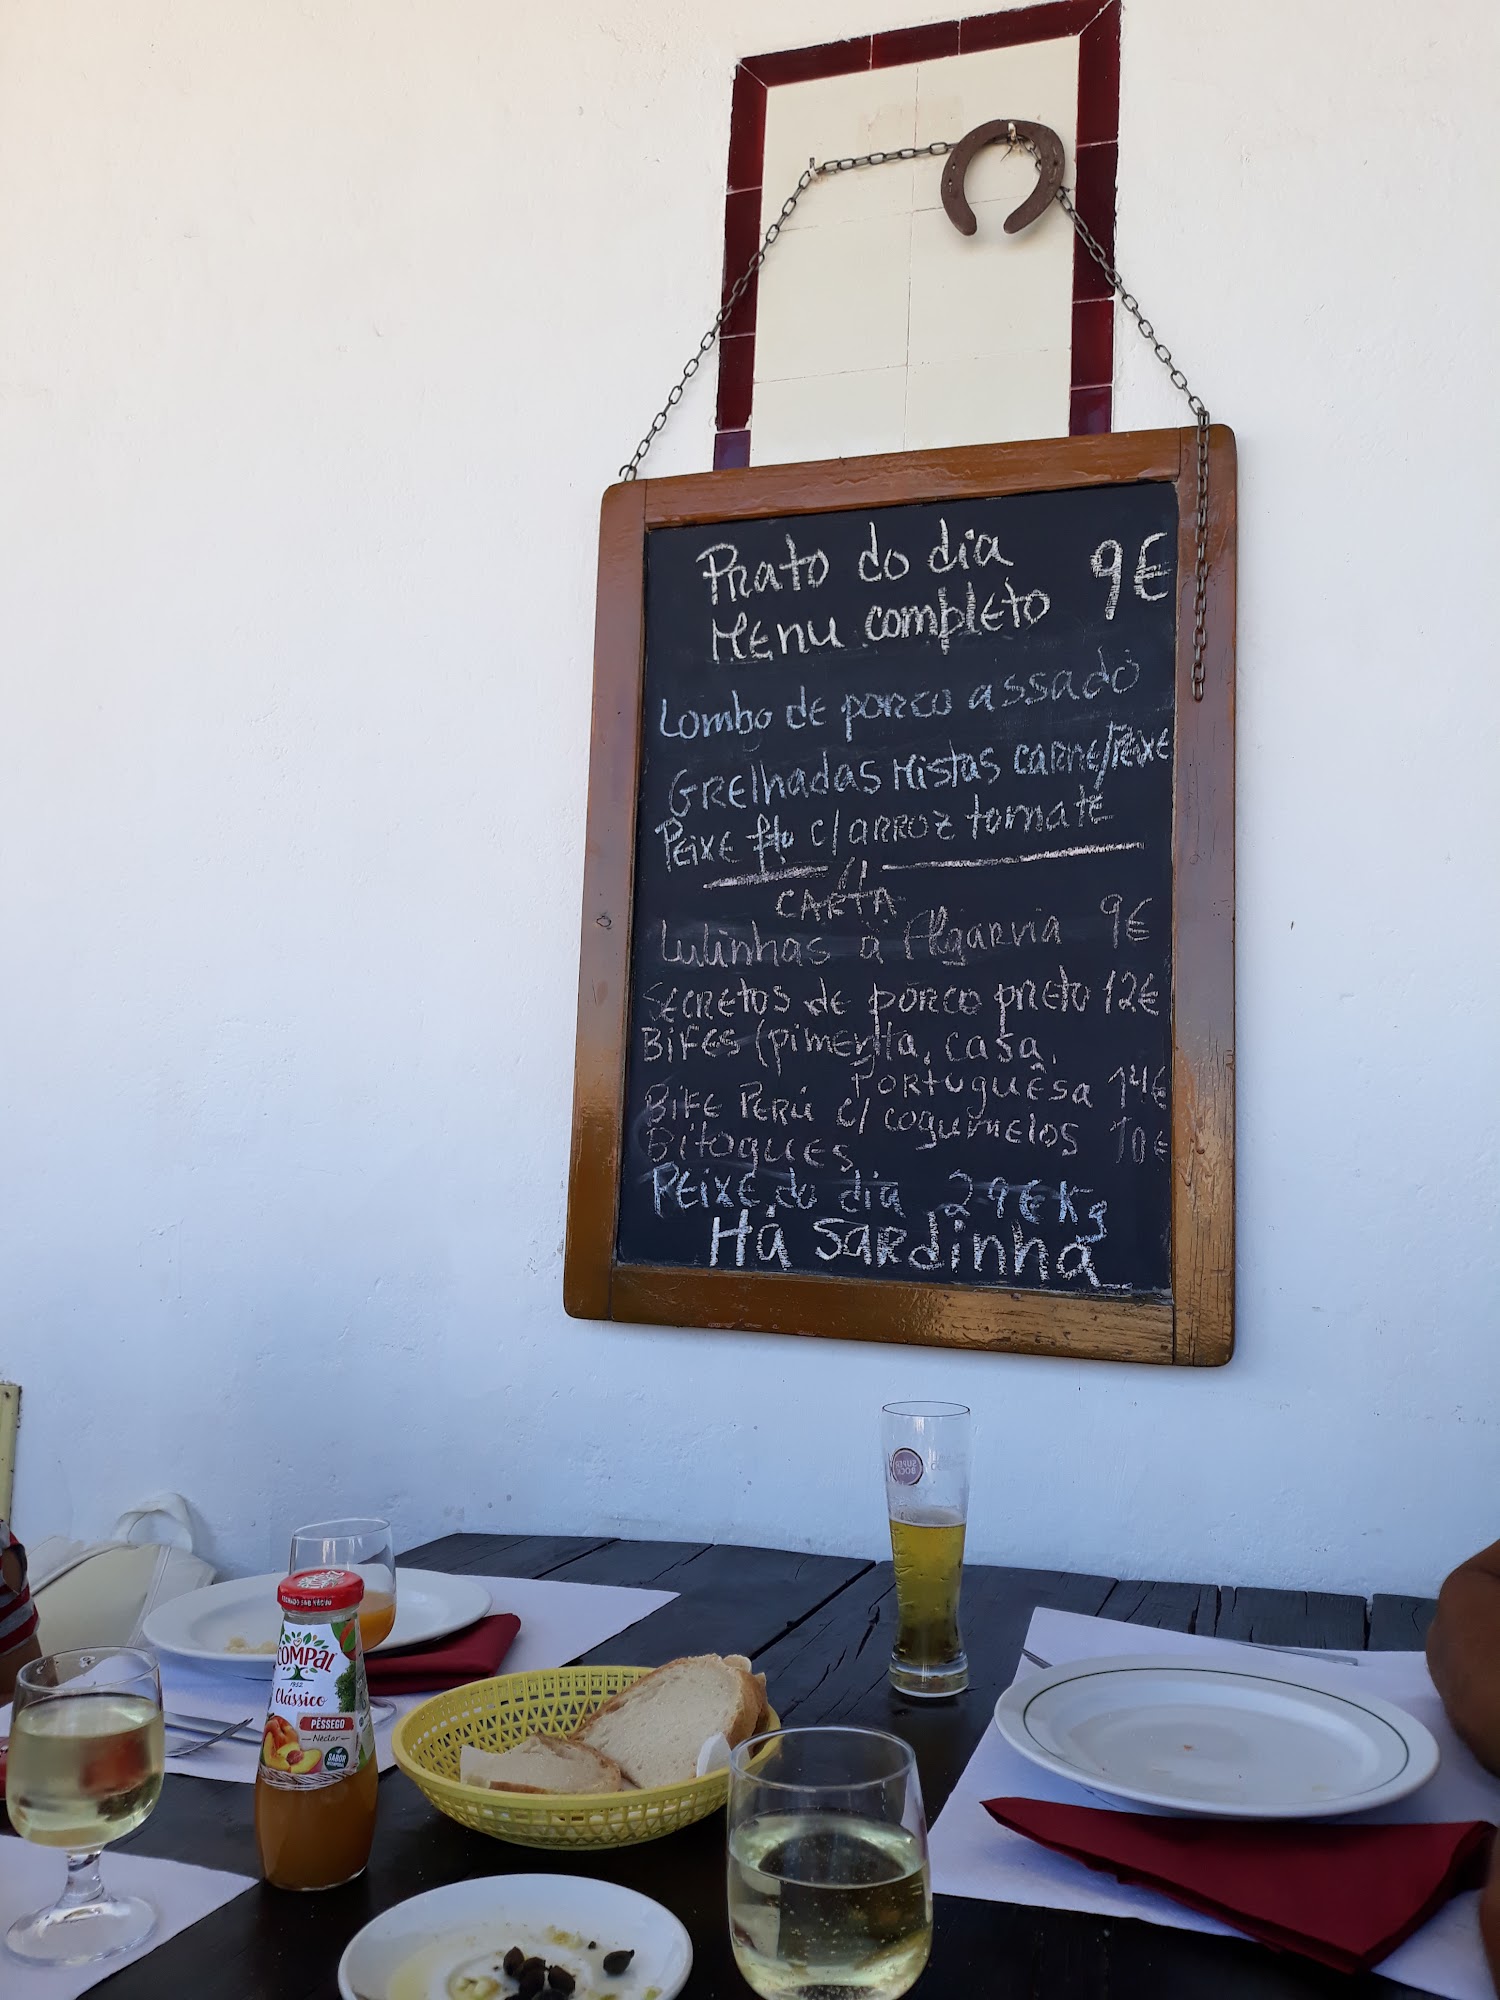 Prato do dia 9€
Menu completo
Lombo de porco assado
Grelhadas Mistas carne/Peixe
Peixe fto c/ arroz tomate
CARTA
Lulinhas à Algarvia 9€
Secretos de porco preto 12€
Bifes (pimenta, casa,
Portuguêsa 14€
Bife Perú c/ cogumelos 10€
Bitoques
Peixe do dia 29€ Kg
Há sardinha
SUPER
BOCK
COMPAL
1952
Clássico
PÊSSEGO
Néctar
SABOR